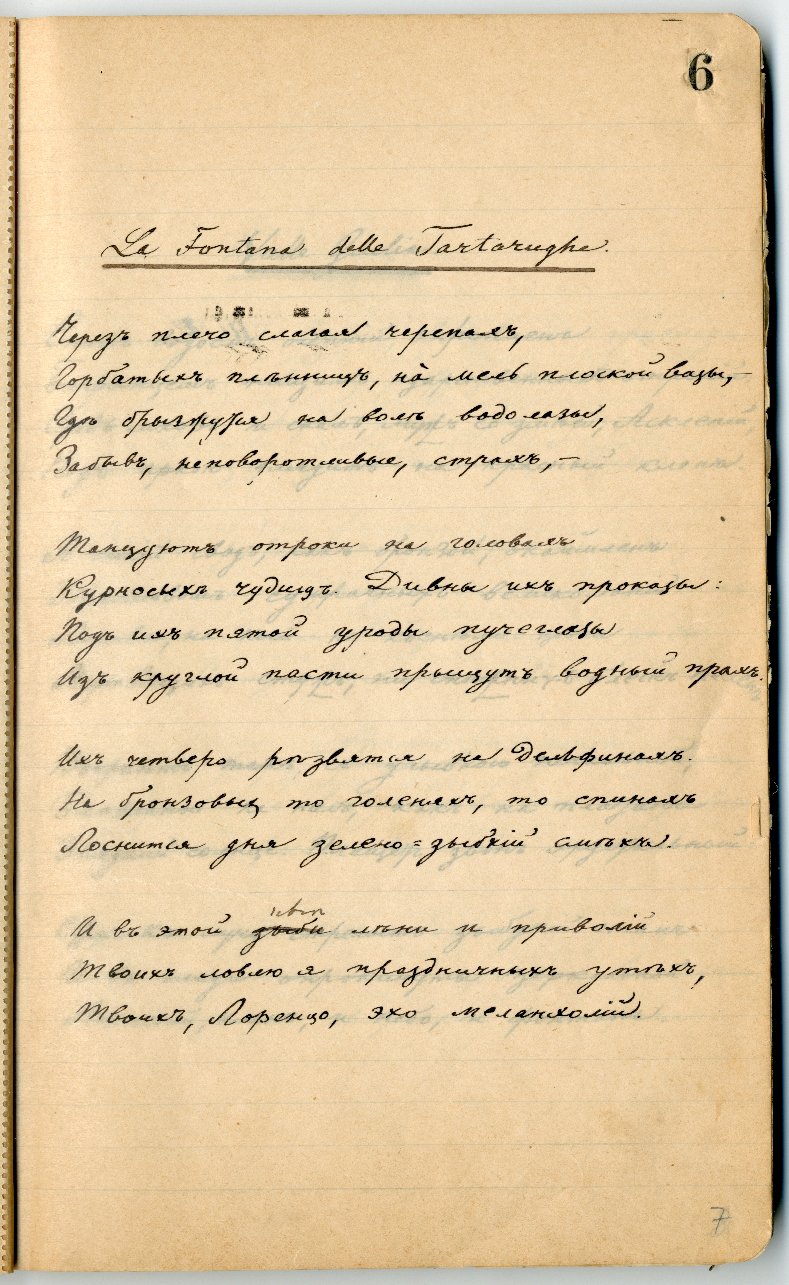 6
La Fontana delle Tartarughe.
Черезъ плечо слагая черепахъ,
Горбатыхъ плѣнницъ, на̀ мель плоской вазы,—
Гдѣ брызжутся на волѣ водолазы,
Забывъ, неповоротливые, страхъ,—
Танцуютъ отроки на головахъ
Курносыхъ чудищъ. Дивны ихъ проказы:
Подъ ихъ пятой уроды пучеглазы
Изъ круглой пасти прыщутъ водный прахъ.
Ихъ четверо рѣзвятся на дельфинахъ.
На бронзовыхъ то голеняхъ, то спинахъ
Лоснится дня зелено=зыбкій смѣхъ.
И въ этой зыби лѣни и приволій
Твоихъ ловлю я праздничныхъ утѣхъ,
Твоихъ, Лоренцо, эхо меланхолій.
7